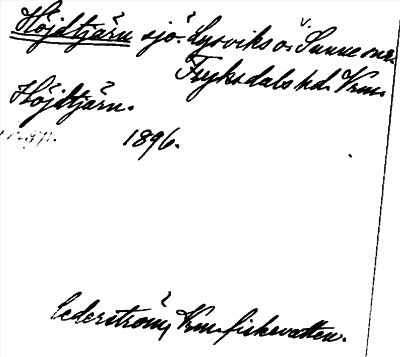 Höjdtjärn sjö. Lysviks o. Sunne snr.
Fryksdals hd. Vrm.
Höjdtjärn.
1896.
Cederström, Vrm. fiskevatten.